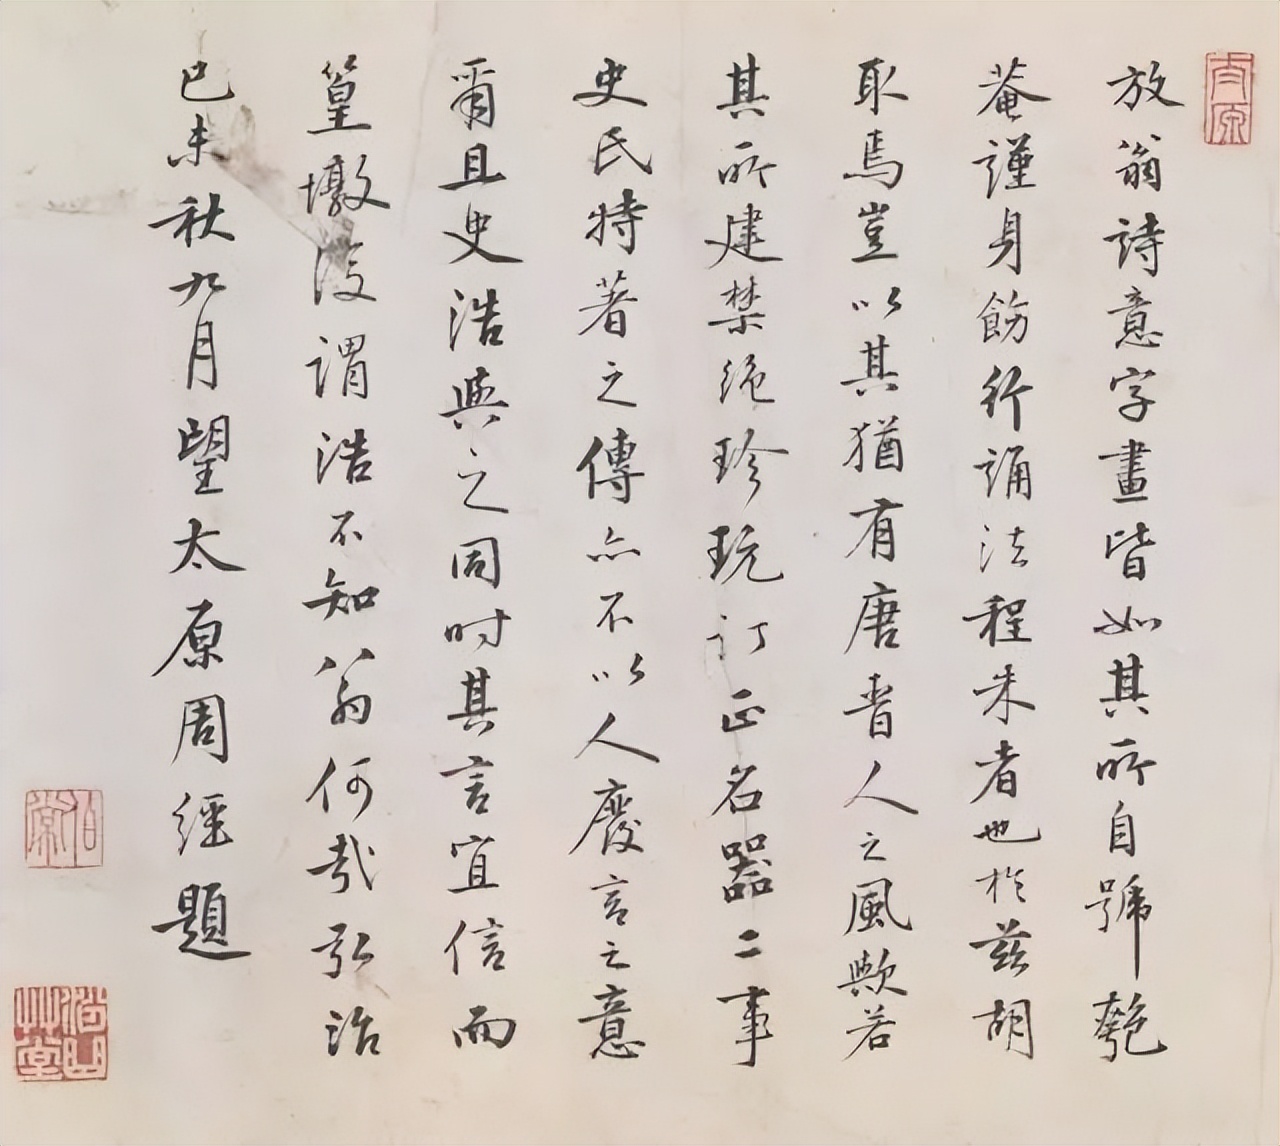 太原
放翁詩意字畫皆如其所自號匏
菴謹身飭行誦法程朱者也於茲胡
取焉豈以其猶有唐晉人之風歟若
其所建禁絕珍玩訂正名器二事
史氏特著之傳亦不以人廢言之意
爾且史浩與之同時其言宜信而
篁墩復謂浩不知翁何哉弘治
己未秋九月望太原周經題
伯常